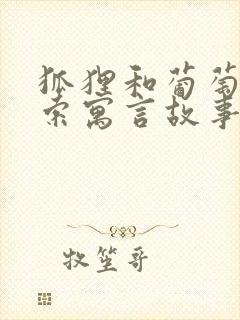 狐狸和葡萄
索寓言故事
牧笙哥